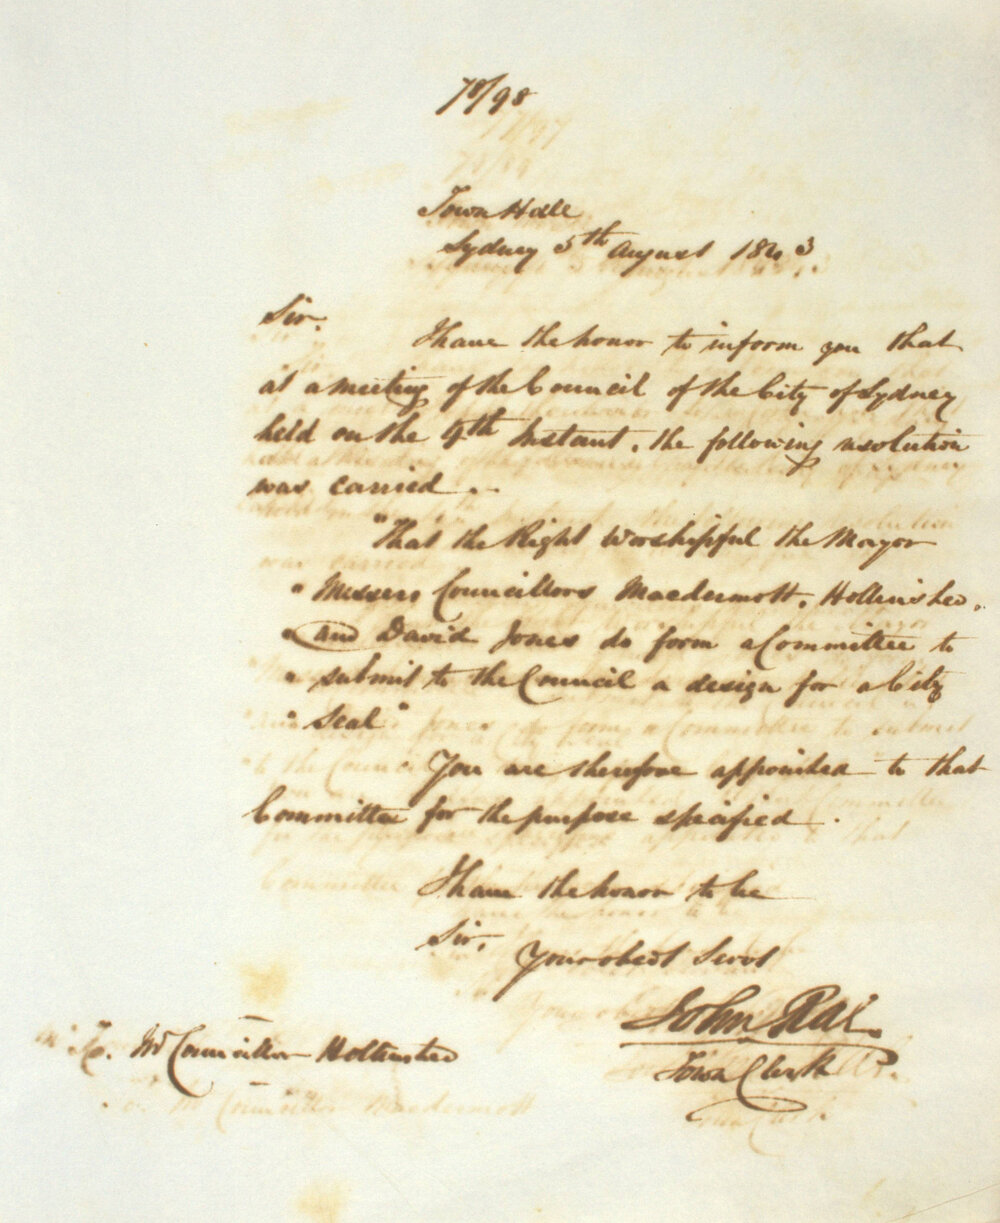 78/98
Town Hall
Sydney 5th August 1843
Sir.
I have the honor to inform you that
at a meeting of the Council of the City of Sydney
held on the 4th Instant, the following resolution
was carried.
"That the Right Worshipful the Mayor
" Messers Councillors Macdermott, Hollinshed,
" and David Jones do form a Committee to
" submit to the Council a design for a City
" Seal"
You are therefore appointed to that
Committee for the purpose specified.
I have the honor to be
Sir,
Your obedt Servt
John Rae.
Town Clerk
To. Mr Councillor Hollinshed